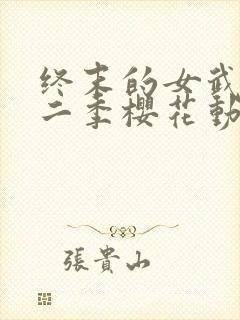 终末的女武
二季櫻花動
張貴山